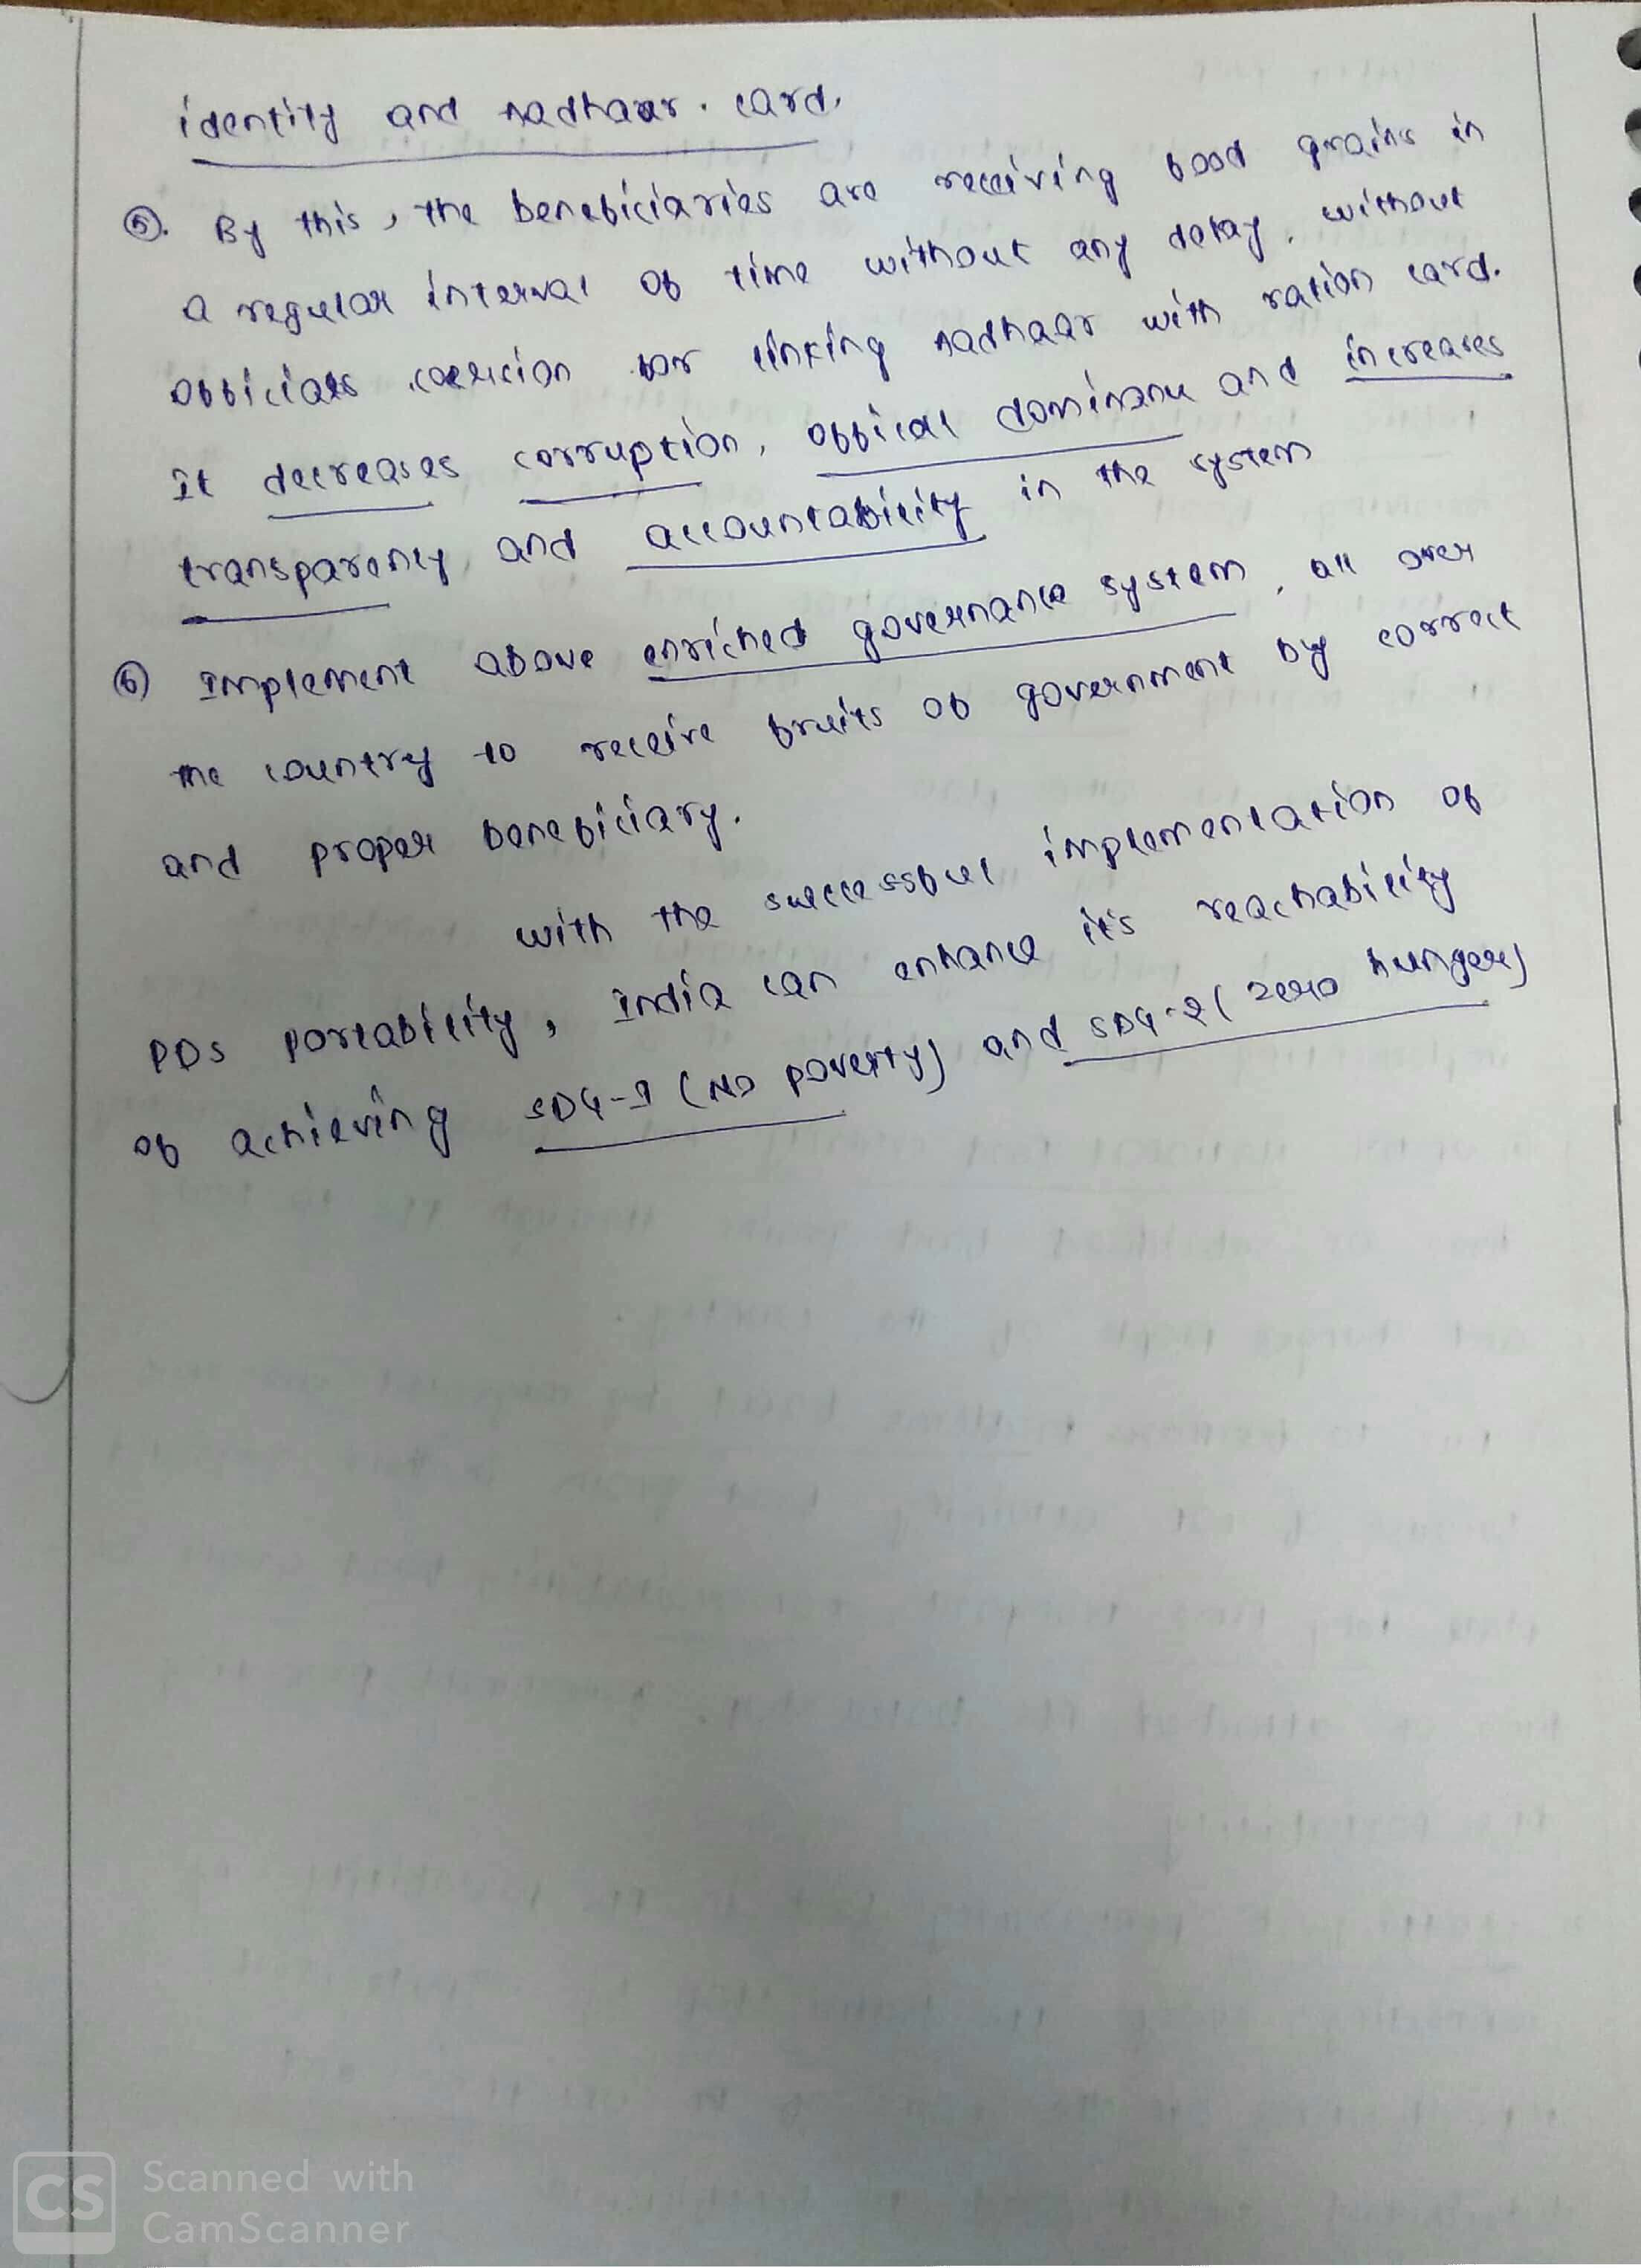 identity and Aadhaar card.
⑤. By this, the beneficiaries are receiving food grains in
a regular interval of time without any delay, without
officials coericion for linking Aadhaar with ration card.
It decreases corruption, offical dominance and increases
transparency, and accountability in the system
⑥ Implement above enriched governance system, all over
the country to receive fruits of government by correct
and proper beneficiary.
with the successful implementation of
PDS portability, India can enhance it's reachability
of achieving SDG-1 (No poverty) and SDG-2 (zero hunger)
CS Scanned with
CamScanner